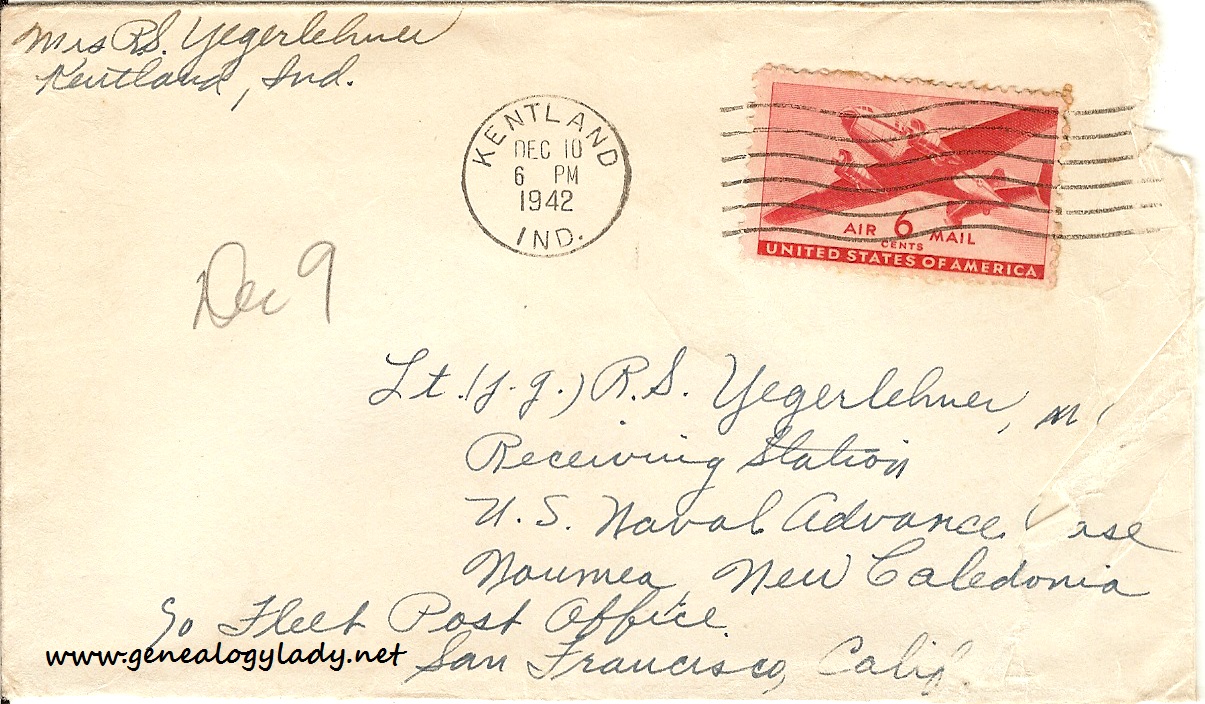 Mrs R.S. Yegerlehner
Kentland, Ind.
KENTLAND
DEC 10
6 PM
1942
IND.
AIR 6 MAIL
CENTS
UNITED STATES OF AMERICA
Dec 9
Lt. (j.g.) R.S. Yegerlehner,
Receiving Station
U.S. Naval Advance
Noumea, New Caledonia
c/o Fleet Post Office
San Francisco, Calif.
www.genealogylady.net